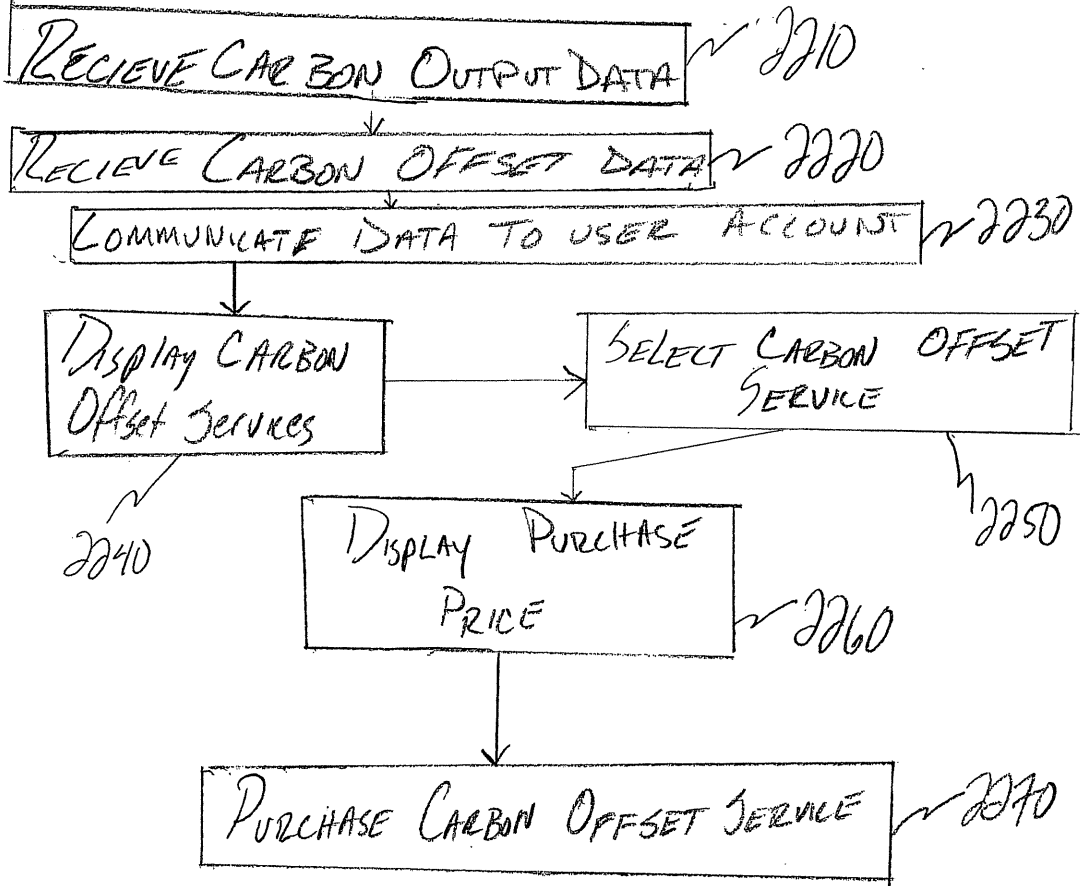 RECIEVE CARBON OUTPUT DATA
2210
RECIEVE CARBON OFFSET DATA
2220
COMMUNICATE DATA TO USER ACCOUNT
2230
Display CARBON
Offset Services
2240
SELECT CARBON OFFSET
SERVICE
2250
DISPLAY PURCHASE
PRICE
2260
PURCHASE CARBON OFFSET SERVICE
2270